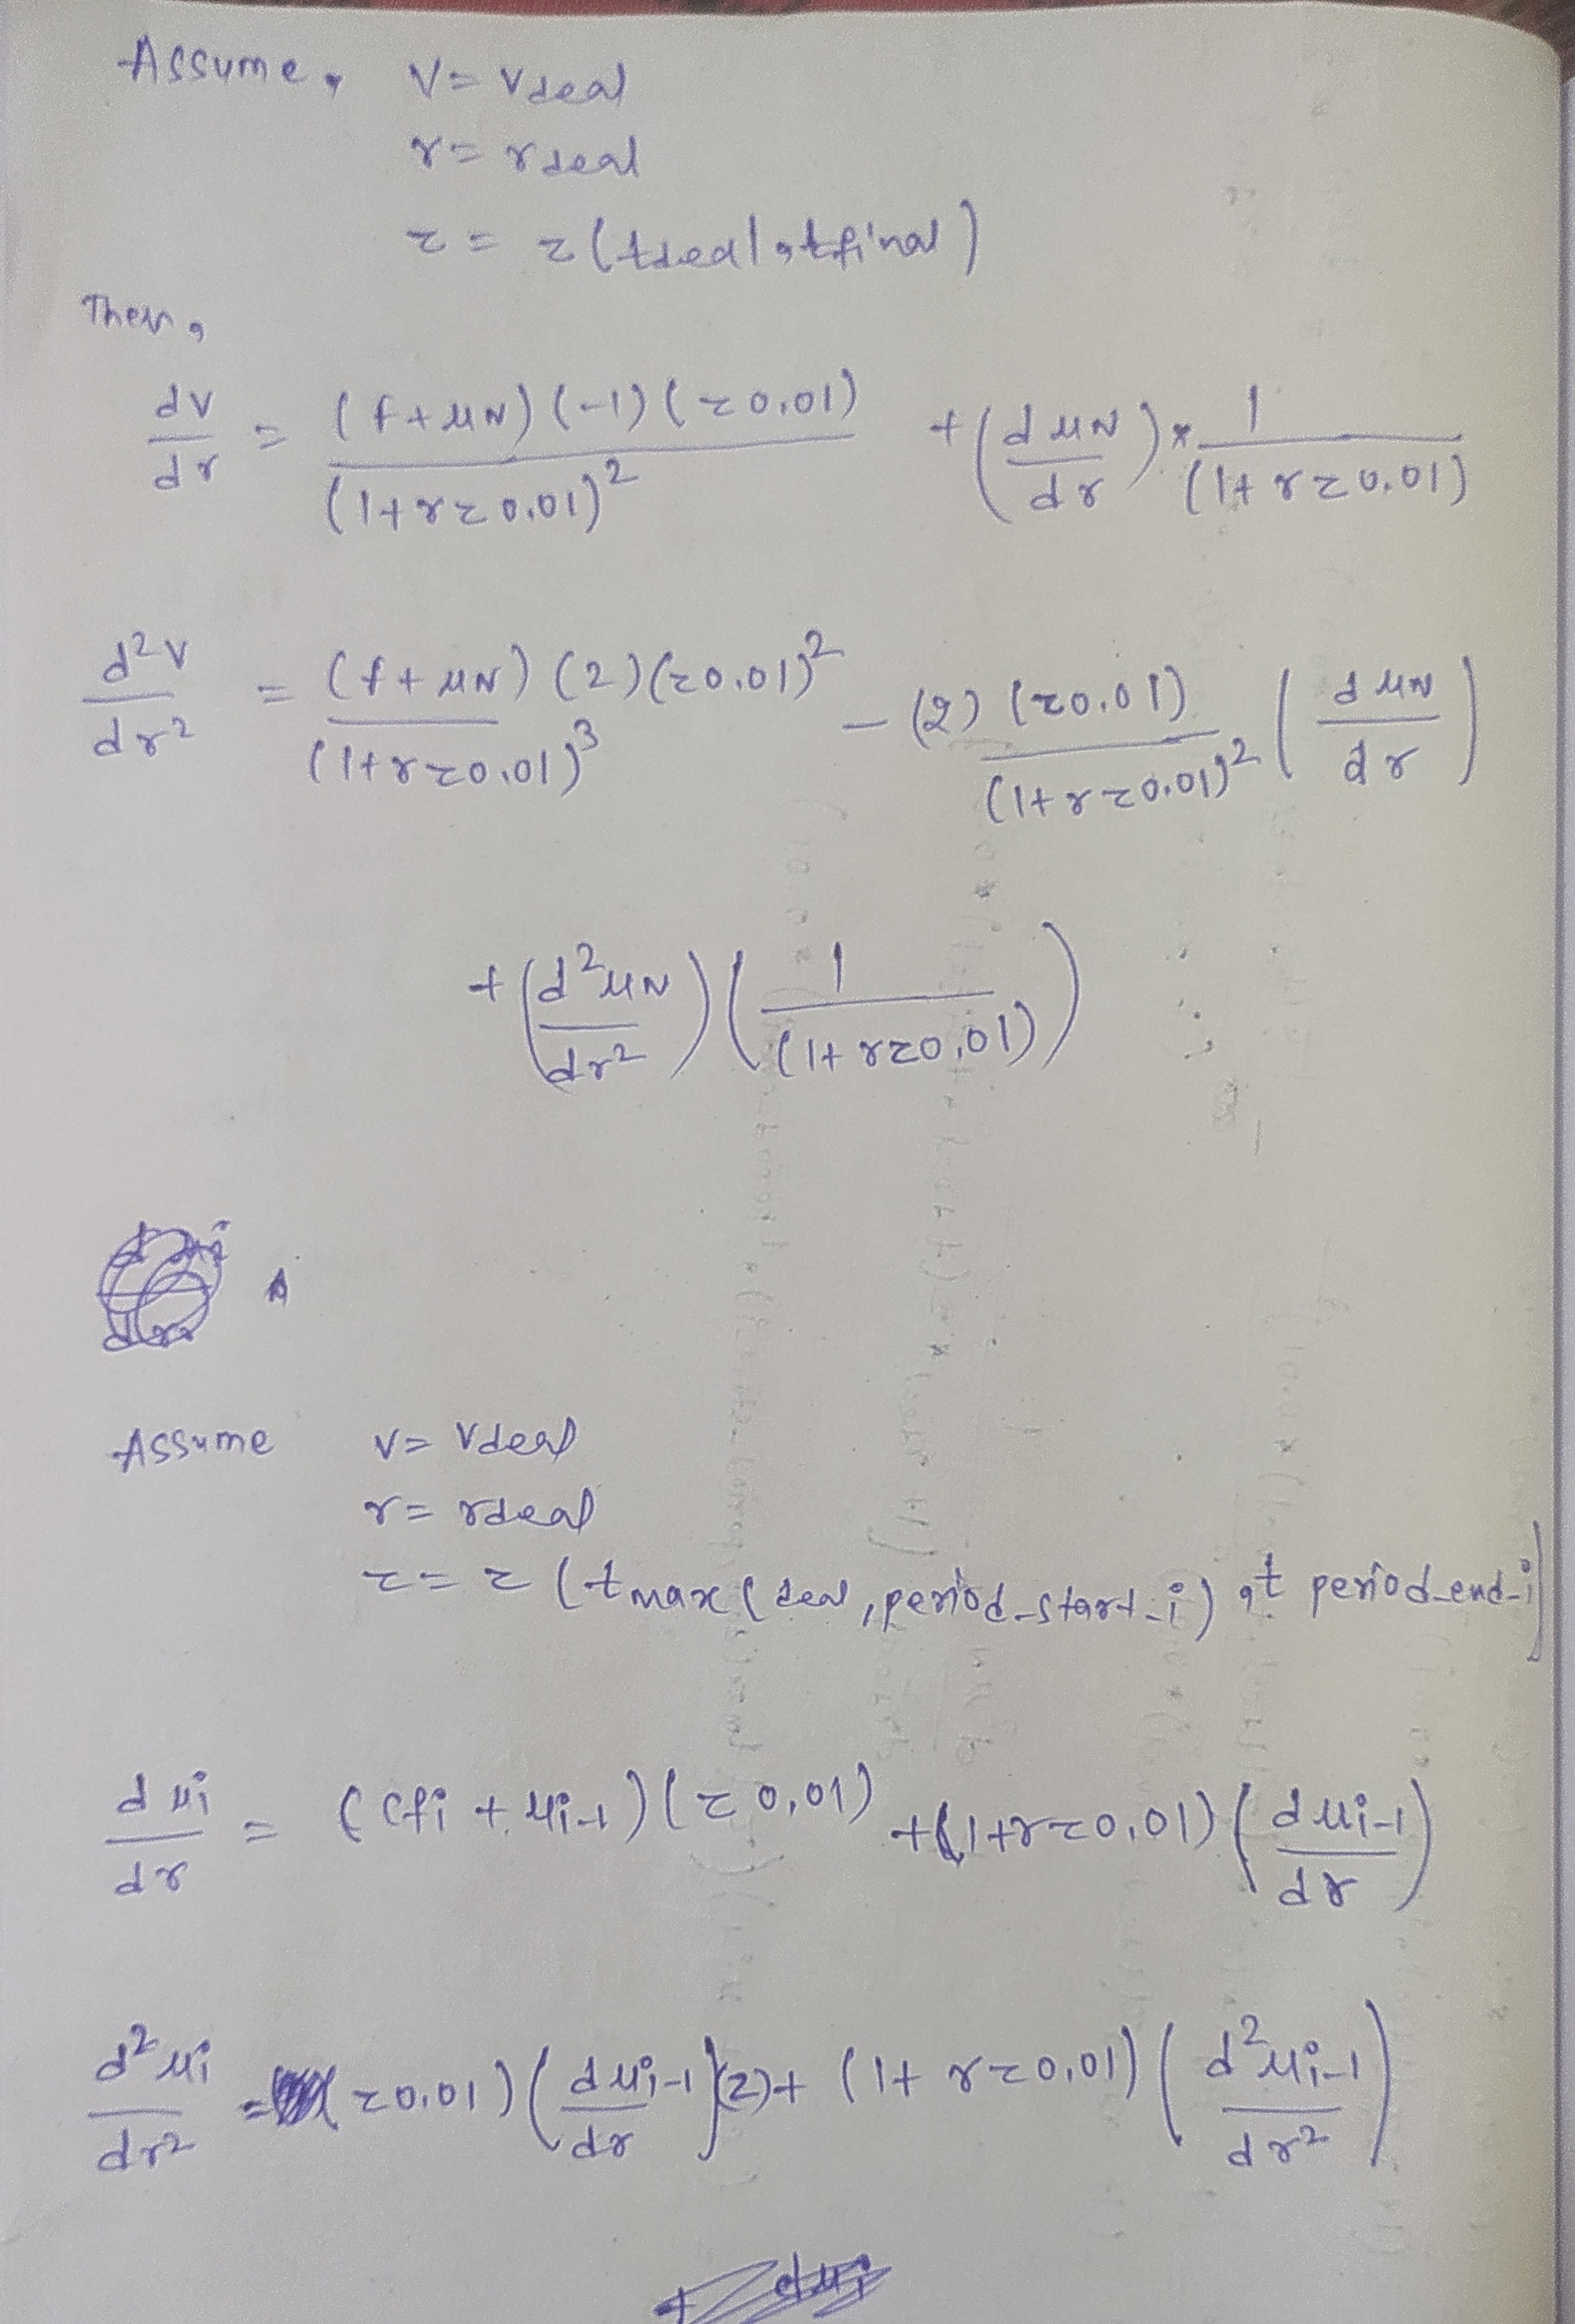 Assume, V = Vdeal
r = rdeal
τ = τ(tdeal, tfinal)
Then,
dV/dr = (f + μN)(-1)(τ0.01)/(1+rτ0.01)² + (dμN/dr) * 1/(1+rτ0.01)
d²V/dr² = (f + μN)(2)(τ0.01)²/(1+rτ0.01)³ − (2)(τ0.01)/(1+rτ0.01)² (dμN/dr)
+ (d²μN/dr²)(1/(1+rτ0.01))
Assume V = Vdeal
r = rdeal
τ = τ(tmax(deal, period_start_i), t period_end_i)
dμi/dr = (Cfi + μi-1)(τ0.01) + (1+rτ0.01)(dμi-1/dr)
d²μi/dr² = (τ0.01)(dμi-1/dr)(2) + (1+rτ0.01)(d²μi-1/dr²)